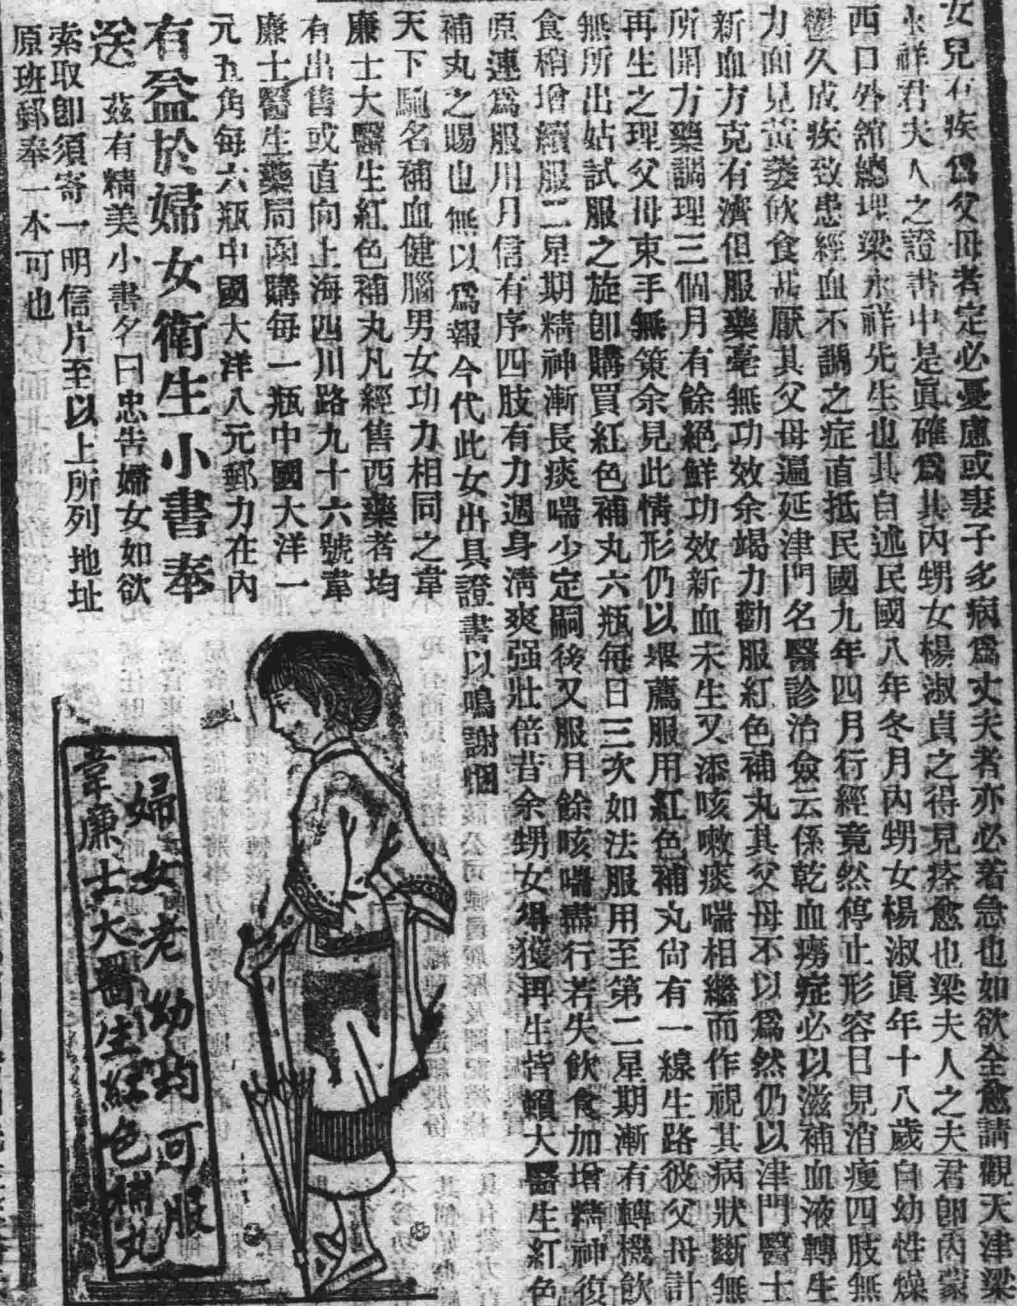 女兒有疾爲父母者定必憂慮或妻子多病爲丈夫者亦必着急也如欲全愈請觀天津梁
永祥君夫人之證書中是眞確爲其內甥女楊淑貞之得見痊愈也梁夫人之夫君卽內蒙
西口外舘總理梁永祥先生也其自述民國八年冬月內甥女楊淑眞年十八歲自幼性燥
鬱久成疾致患經血不調之症直抵民國九年四月行經竟然停止形容日見消瘦四肢無
力面見黃萎飲食甚厭其父母遍延津門名醫診治僉云係乾血癆症必以滋補血液轉生
新血方克有濟但服藥毫無功效余竭力勸服紅色補丸其父母不以爲然仍以津門醫士
所開方藥調理三個月有餘絕鮮功效新血未生又添咳嗽痰喘相繼而作視其病狀斷無
再生之理父母束手無策余見此情形仍以舉薦服用紅色補丸尙有一線生路彼父母計
無所出姑試服之旋卽購買紅色補丸六瓶每日三次如法服用至第二星期漸有轉機飲
食稍增續服二星期精神漸長痰喘少定嗣後又服月餘咳喘盡行若失飲食加增精神復
原連爲服用月信有序四肢有力週身清爽强壯倍昔余甥女得獲再生皆賴大醫生紅色
補丸之賜也無以爲報今代此女出具證書以鳴謝悃
天下馳名補血健腦男女功力相同之韋
廉士大醫生紅色補丸凡經售西藥者均
有出售或直向上海四川路九十六號韋
廉士醫生藥局函購每一瓶中國大洋一
元五角每六瓶中國大洋八元郵力在內
有益於婦女衛生小書奉
送 茲有精美小書名曰忠告婦女如欲
索取卽須寄一明信片至以上所列地址
原班郵奉一本可也
婦女老幼均可服
韋廉士大醫生紅色補丸